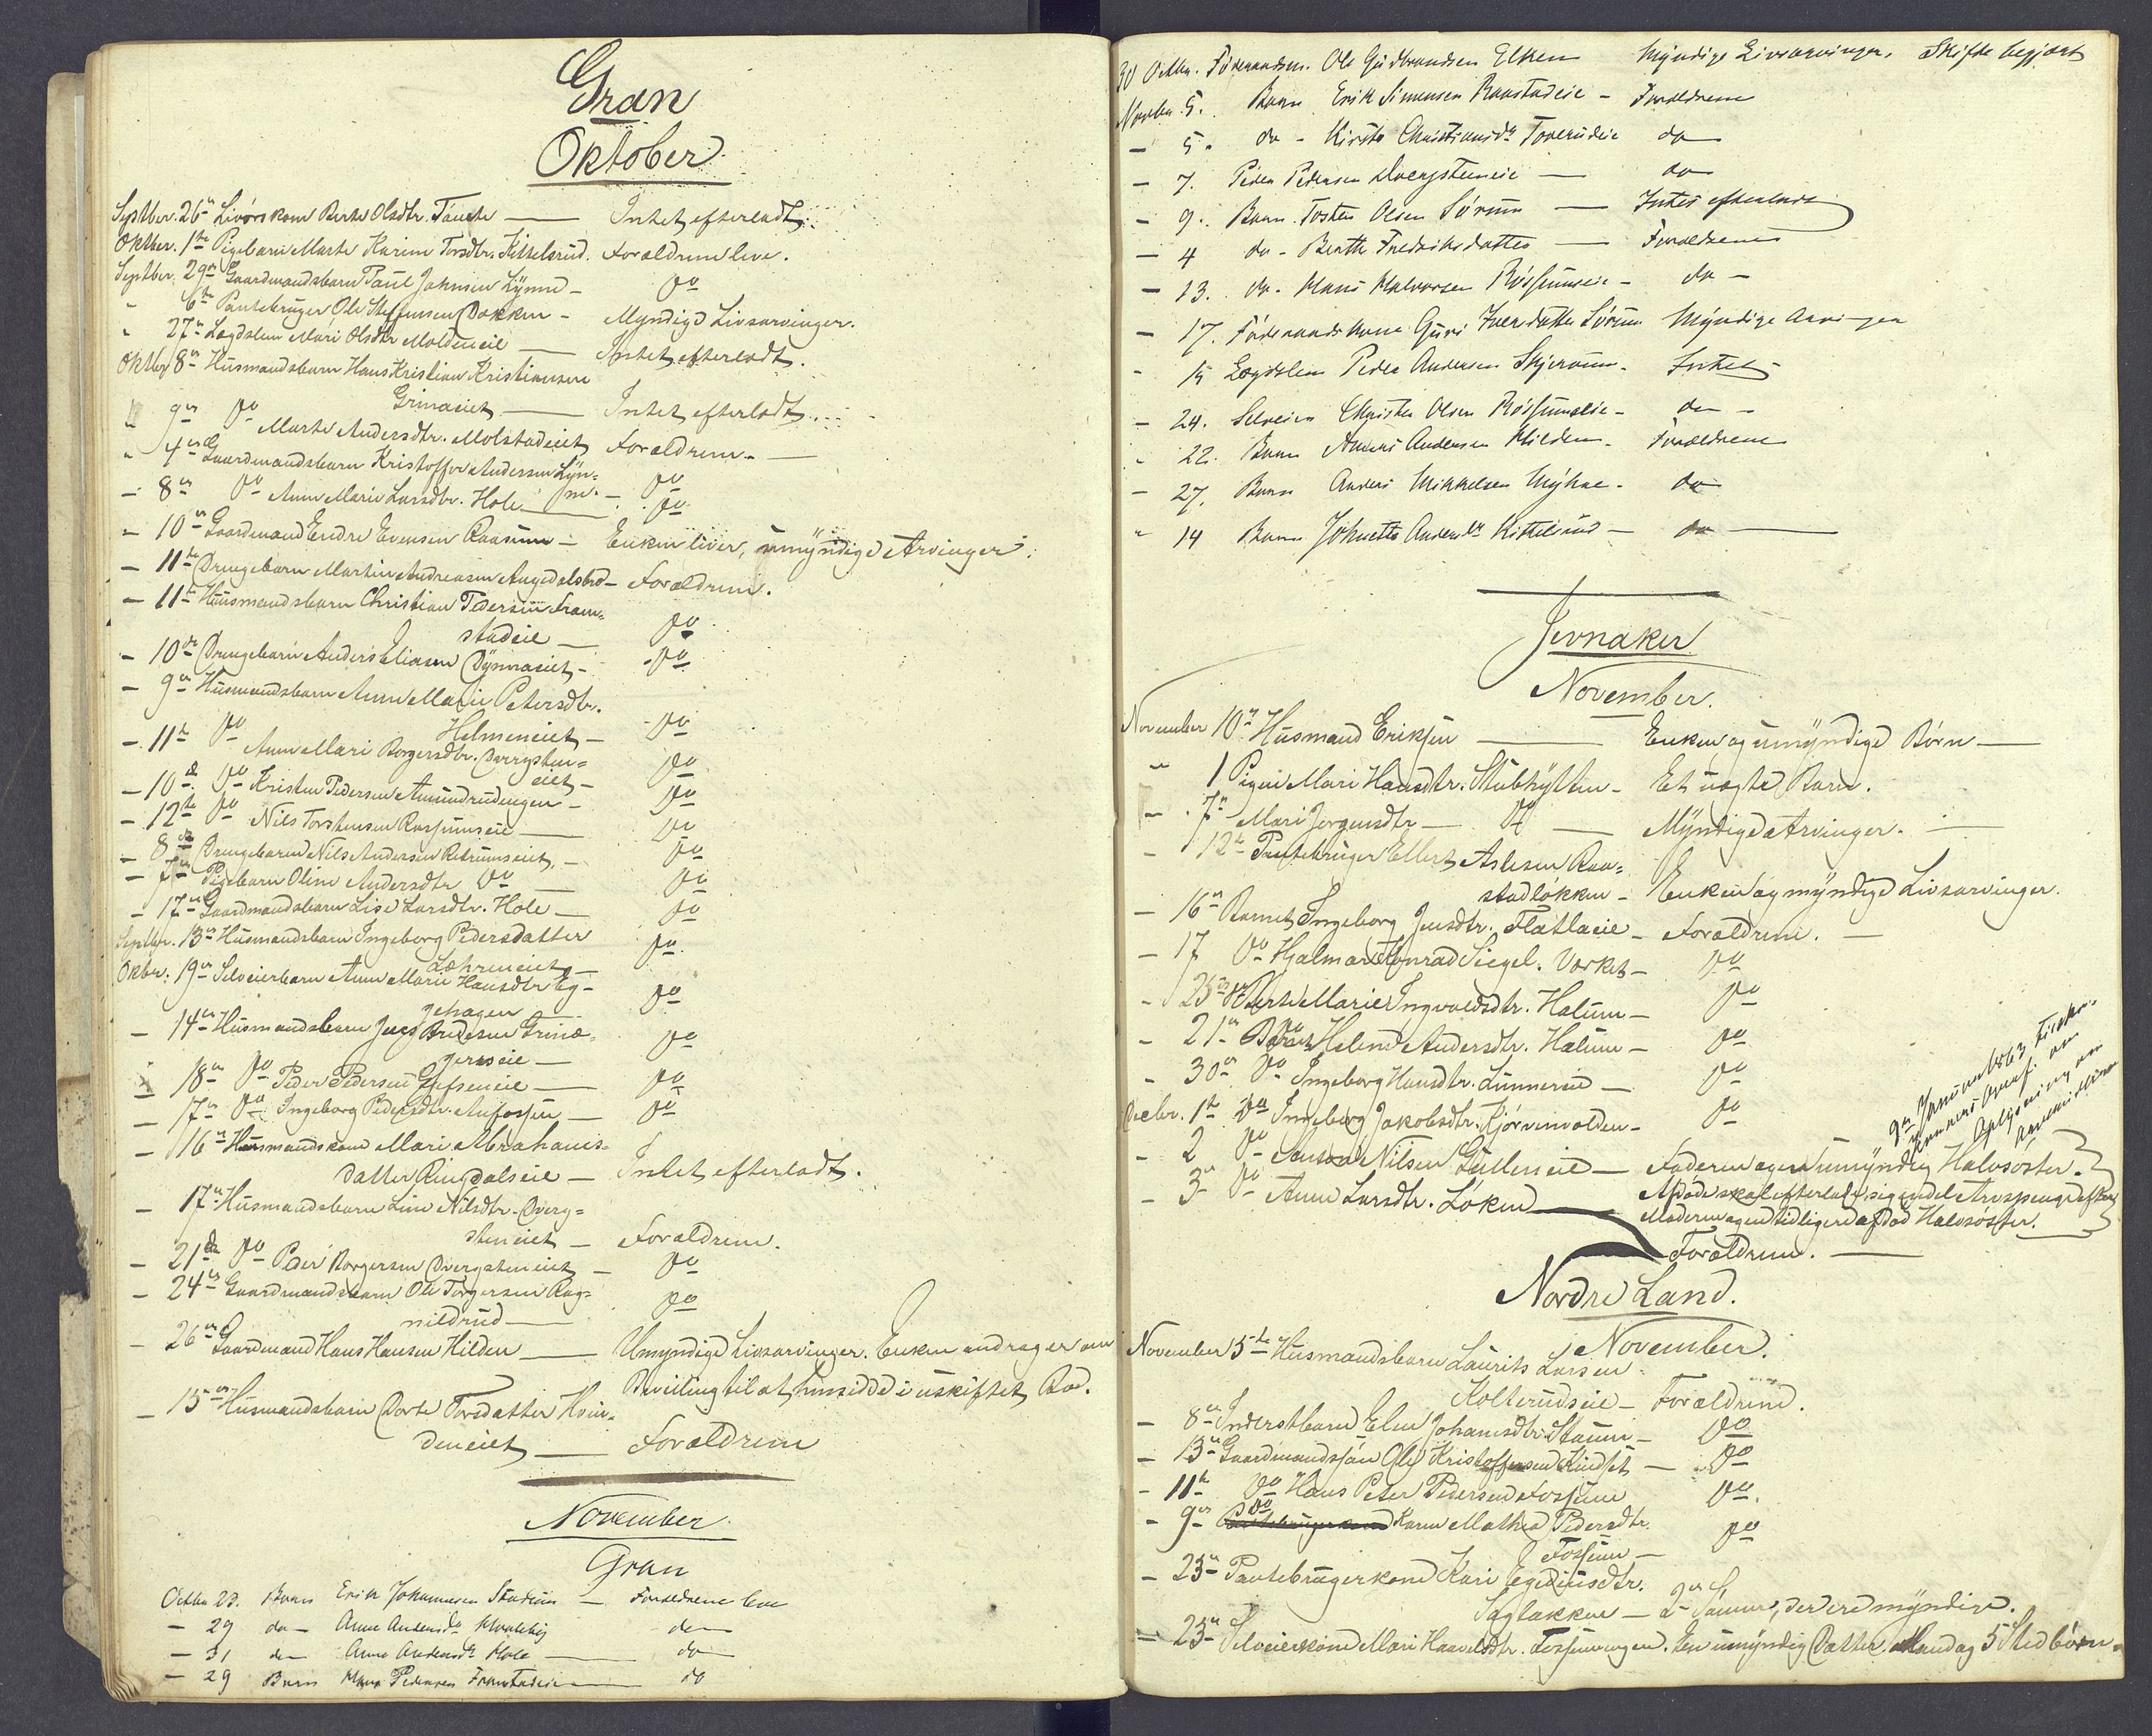 Gran
Oktober
Septber. 26de Livørskone Berte Olsdtr. — Intet efterladt.
Oktber. 1ste Pigebarn Marte Karine Torsdtr. Kittelsrud. Forældrene leve.
Septber. 29de Gaardmandsbarn Paul Johnsen Lynne — Do
" 6te Pantebruger Ole Steffensen Dokken — Myndige Livsarvinger.
" 27de Lægdslem Mari Olsdtr Moldeneie — Intet efterladt.
Oktber 8de Husmandsbarn Hans Kristian Kristiansen
Grinaeiet — Intet efterladt.
9de Do Marte Andersdtr. Molstadeiet Forældrene. —
" 4de Gaardmandsbarn Kristoffer Andersen Lyn-
ne. — Do
— 8de Do Anne Marie Larsdtr. Hole — Do
— 10de Gaardmand Endre Evensen Raasum — Enken lever, umyndige Arvinger.
— 11te Drengebarn Martin Andreasen — Forældrene.
— 11te Husmandsbarn Christian Pedersen Fram-
stadeie — Do
— 10de Drengebarn Anders Eliasen Dynnaeiet — Do
— 9de Husmandsbarn Anne Marie Petersdtr.
Helmeneiet — Do
— 11te Do Anne Mari Borgersdtr. Dvergsten-
eiet — Do
— 10de Do Kristen Pedersen Amundrudengen — Do
— 12te Do Nils Torstensen Rossumseie — Do
— 8de Drengebarn Nils Andersen — Do
— 7de Pigebarn Oline Andersdtr Do — Do
— 17de Gaardmandsbarn Lise Larsdtr. Hole — Do
Septbr. 13de Husmandsbarn Ingeborg Pedersdatter
— Do
Oktbr. 19de Selveierbarn Anne Marie Hansdtr Eg-
gehagen — Do
— 14de Husmandsbarn Jens Grina-
gerseie — Do
18de Do Peder Pedersen — Do
— 17de Do Ingeborg Pedersdtr. — Do
— 16de Husmandskone Mari Abrahams-
datter Ringdalseie — Intet efterladt.
— 17de Husmandsbarn Line Nilsdtr. Dverg-
steneiet — Forældrene.
— 21de Do Peder Borgersen Dvergsteneiet — Do
— 24de Gaardmandsbarn Ole Torgersen Rag-
nildrud — Do
— 26de Gaardmand Hans Hansen Hilden — Umyndige Livsarvinger. Enken andrager om
Bevilling til at hensidde i uskiftet Bo.
— 15de Husmandsbarn Dorte Torsdatter Hvin-
deneiet — Forældrene
November
Gran
Octbr 23. Barn Erik Johannesen — Forældrene leve
— 29 do — Anne Andersdr Hvaleby — do
— 31 do — Anne Andersdr Hole — do
— 29 Barn Pedersen Framstadeie — do
30 Octbr. Føderaadsm. Ole Gudbrandsen Elken Myndige Livsarvinger. Skifte begjært
Novbr. 5. Barn Erik Simensen Raastadeie — Forældrene
— 5. do — Kirsti Christiansdr Toverudeie do
— 7. Peder Pedersen Dvergsteneie — do
— 9. Barn Tosten Olsen Sørum — Intet efterladt
— 4 do — Berthe Fredriksdatter — Forældrene
— 13. do. Hans Halvorsen Røssumseie — do —
— 17. Føderaadskone Guri Iversdatter Sørum Myndige Arvinger
" 15 Lægdslem Peder Andersen Skjervum. Intet
— 24. Selveier Christen Olsen Røssumseie — do —
" 22. Barn Andersen Hilden. Forældrene
— 27. Barn Anders Mikkelsen Myhre. do
" 14 Barn Johnette Andersdr Kittelsrud — do —
Jevnaker
November.
November 10de Husmand Eriksen — Enken og umyndige Børn —
" 1 Pigen Mari Hansdtr. Stubhytten — Et uægte Barn.
— 7de Mari Jørgensdtr — Do — Myndige Arvinger. —
— 12te Pantebruger Ellert Aslesen Raa-
stadløkken — Enken og myndige Livsarvinger.
— 16de Barnet Ingeborg Jensdtr. Flatlaeie — Forældrene. —
— 17 Do Hjalmar Konrad Siegel. Værket — Do
— 25de Do Berte Marie Ingvaldsdtr. Halum — Do
— 21de Do Helene Andersdtr. Halum — Do
— 30de Do Ingeborg Hansdtr. Lunnerie — Do
Decbr. 1ste Do Ingeborg Jakobsdtr. Kjørvenvolden — Do
— 2 Do Nilsen Gulleneie — Faderen og en umyndig Halvsøster.
— 3de Do Anne Larsdtr. Løken — Afdøde skal efterladt sig endel Arvepenge efter
Moderen og en tidligere afdød Halvsøster.
Forældrene. —
9de Januar 1863
Oplysning om
Nordre Land.
November.
November 5te Husmandsbarn Laurits Larsen
Kolterudseie — Forældrene.
— 8de Inderstbarn Elen Johannesdtr. — Do
— 13de Gaardmandssøn Ole Kristoffersen Kindset — Do
— 11te Do Hans Peter Pedersen Fossum Do.
— 9de Do Karen Mathea Pedersdtr.
Fossum — Do
— 23de Pantebrugerkone Kari Egediusdtr.
Saglakken — 2de Sønner, der ere myndige.
— 23de Selveierkone Mari Haavelsdtr. Fossumengen. En umyndig Datter Mand og 5 Stedbørn.